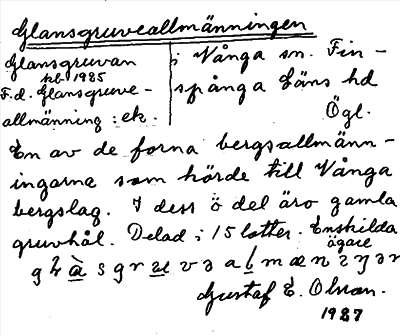 Glansgruveallmänningen
Glansgruvan
kb 1985
F.d. Glansgruve-
allmänning : ek.
i Vånga sn. Fin-
spånga Läns hd
Ögl.
En av de forna bergsallmänn-
ingarna som hörde till Vånga
bergslag. I dess ö del äro gamla
gruvhål. Delad i 15 lotter. Enskilda
ägare
Gustaf E. Olsson.
1937